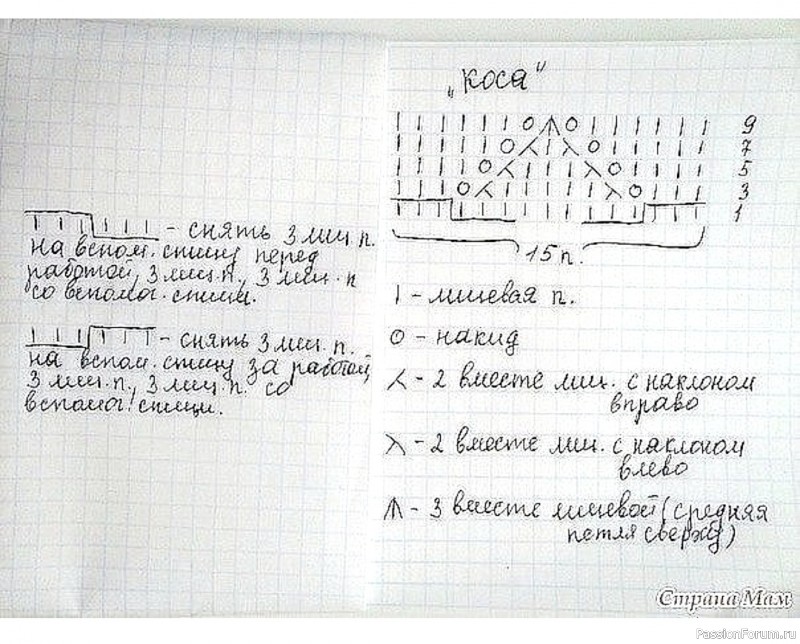 - снять 3 лиц. п.
на вспом. спицу перед
работой, 3 лиц. п., 3 лиц. п
со вспомог. спицы.
- снять 3 лиц. п.
на вспом. спицу за работой,
3 лиц. п., 3 лиц. п. со
вспомог. спицы.
„Коса“
| | | | | | O ⋀ O | | | | | | 9
| | | | | O ⋌ | ⋋ O | | | | | 7
| | | | O ⋌ | | | ⋋ O | | | | 5
| | | O ⋌ | | | | | ⋋ O | | | 3
| | | | | | | | | | | | | | | 1
15 п.
| - лицевая п.
O - накид
⋌ - 2 вместе лиц. с наклоном
вправо
⋋ - 2 вместе лиц. с наклоном
влево
⋀ - 3 вместе лицевой (средняя
петля сверху)
Страна Мам
PassionForum.ru